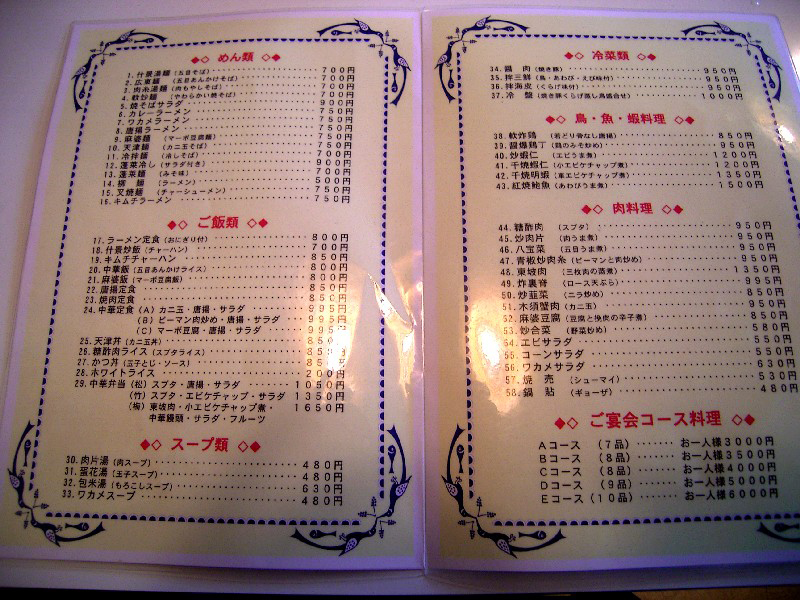 ◆◇ めん類 ◇◆
1. 什景湯麺 (五目そば) 700円
2. 広東麺 (五目あんかけそば) 700円
3. 肉糸湯麺 (肉もやしそば) 700円
4. 軟炒麺 (やわらかい焼そば) 700円
5. 焼そばサラダ 900円
6. カレーラーメン 750円
7. ワカメラーメン 750円
8. 唐揚ラーメン 750円
9. 麻婆麺 (マーボ豆腐麺)
10. 天津麺 (カニ玉そば)
11. 冷拌麺 (冷しそば) 700円
12. 蓬莱冷し (サラダ付き) 900円
13. 蓬莱麺 (みそ味) 700円
14. 搭麺 (ラーメン) 500円
15. 叉焼麺 (チャーシューメン) 750円
16. キムチラーメン 750円
◆◇ ご飯類 ◇◆
17. ラーメン定食 (おにぎり付) 800円
18. 什景炒飯 (チャーハン) 700円
19. キムチチャーハン 850円
20. 中華飯 (五目あんかけライス) 800円
21. 麻婆飯 (マーボ豆腐飯) 800円
22. 唐揚定食 850円
23. 焼肉定食
24. 中華定食 (A) カニ玉・唐揚・サラダ 995円
(B) ピーマン肉炒め・唐揚・サラダ 995円
(C) マーボ豆腐・唐揚・サラダ 995円
25. 天津丼 (カニ玉丼)
26. 糖酢肉ライス (スブタライス)
27. かつ丼 (玉子とじ・ソース)
28. ホワイトライス 200円
29. 中華弁当 (松) スブタ・唐揚・サラダ 1050円
(竹) スブタ・エビケチャップ・サラダ 1350円
(梅) 東坡肉・小エビケチャップ煮・ 1650円
中華饅頭・サラダ・フルーツ
◆◇ スープ類 ◇◆
30. 肉片湯 (肉スープ) 480円
31. 蛋花湯 (玉子スープ) 480円
32. 包米湯 (もろこしスープ) 630円
33. ワカメスープ 480円
◆◇ 冷菜類 ◇◆
34. 醤肉 (焼き豚) 950円
35. 拌三鮮 (鳥・あわび・えび味付) 950円
36. 拌海皮 (くらげ味付) 950円
37. 冷盤 (焼き豚くらげ蒸し鳥盛合せ) 1000円
◆◇ 鳥・魚・蝦料理 ◇◆
38. 軟炸鶏 (若どり骨なし唐揚) 850円
39. 醤爆鶏丁 (鶏のみそ炒め) 950円
40. 炒蝦仁 (エビうま煮) 1200円
41. 干焼蝦仁 (小エビケチャップ煮) 1200円
42. 干焼明蝦 (車エビケチャップ煮) 1350円
43. 紅焼鮑魚 (あわびうま煮) 1500円
◆◇ 肉料理 ◇◆
44. 糖酢肉 (スブタ) 950円
45. 炒肉片 (肉うま煮) 950円
46. 八宝菜 (五目うま煮) 950円
47. 青椒炒肉糸 (ピーマンと肉炒め) 950円
48. 東坡肉 (三枚肉の蒸煮) 1350円
49. 炸裏脊 (ロース天ぷら) 995円
50. 炒韮菜 (ニラ炒め) 850円
51. 木須蟹肉 (カニ玉) 950円
52. 麻婆豆腐 (豆腐と挽肉の辛子煮) 850円
53. 炒合菜 (野菜炒め) 580円
54. エビサラダ 550円
55. コーンサラダ 550円
56. ワカメサラダ 630円
57. 焼売 (シューマイ) 530円
58. 鍋貼 (ギョーザ) 480円
◆◇ ご宴会コース料理 ◇◆
Aコース (7品) お一人様3000円
Bコース (8品) お一人様3500円
Cコース (8品) お一人様4000円
Dコース (9品) お一人様5000円
Eコース (10品) お一人様6000円